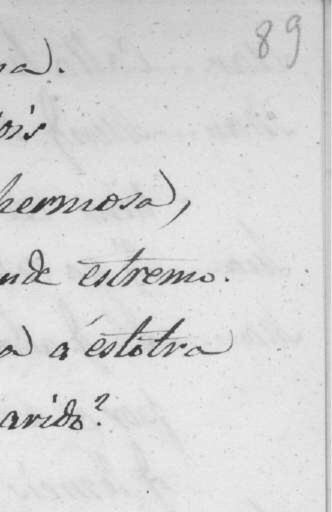 89
na.
ois
hermosa,
nde estremo.
a á estotra
arido?